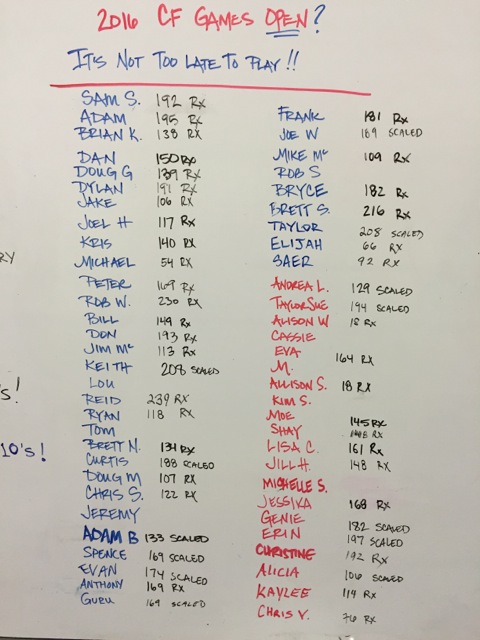 2016 CF GAMES OPEN?
IT'S NOT TOO LATE TO PLAY!!
SAM S. 192 Rx
ADAM 195 Rx
BRIAN K. 138 Rx
DAN 150 Rx
DOUG G 139 Rx
DYLAN 191 Rx
JAKE 106 Rx
JOEL H 117 Rx
KRIS 140 RX
MICHAEL 54 RX
PETER 169 RX
ROB W. 230 RX
BILL 149 Rx
DON 193 Rx
JIM Mc 113 Rx
KEITH 208 SCALED
LOU
REID 239 RX
RYAN 118 RX
TOM
BRETT N. 134 RX
CURTIS 188 SCALED
DOUG M 107 RX
CHRIS S. 122 RX
JEREMY
ADAM B 133 SCALED
SPENCE 169 SCALED
EVAN 174 SCALED
ANTHONY 169 RX
GURU 169 SCALED
FRANK 181 Rx
JOE W 189 SCALED
MIKE Mc 109 RX
ROB S
BRYCE 182 RX
BRETT S. 216 RX
TAYLOR 208 SCALED
ELIJAH 66 RX
SAER 92 RX
ANDREA L. 129 SCALED
TAYLOR SUE 194 SCALED
ALISON W 18 Rx
CASSIE
EVA 164 RX
M.
ALLISON S. 18 RX
KIM S.
MOE 145 RX
SHAY RX
LISA C. 161 RX
JILL H. 148 RX
MICHELLE S.
JESSIKA 168 RX
GENIE
ERIN 182 SCALED
197 SCALED
CHRISTINE 192 RX
ALICIA 106 SCALED
KAYLEE 119 RX
CHRIS V. 76 RX
RY
's!
10's!